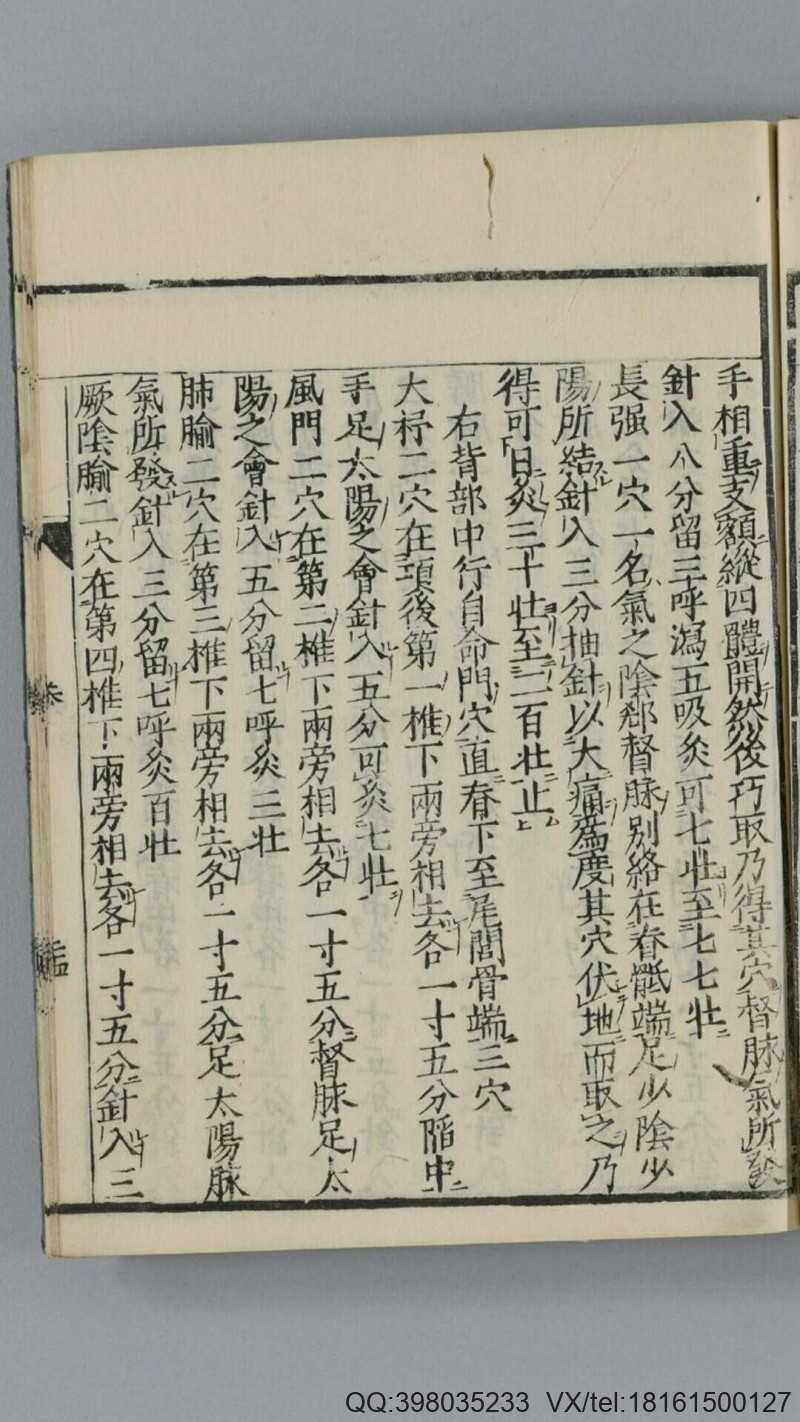 手相重支額縱四體開然後巧取乃得其穴督脉氣所發
針入八分留三呼瀉五吸灸可七壯至七七壯
長强一穴一名氣之陰郄督脉別絡在脊骶端足少陰少
陽所結針入三分抽針以大痛爲度其穴伏地而取之乃
得可日灸三十壯至二百壯止
右背部中行自命門穴直脊下至尾閭骨端三穴
大杼二穴在項後第一椎下兩旁相去各一寸五分陷中
手足太陽之會針入五分可灸七壯
風門二穴在第二椎下兩旁相去各一寸五分督脉足太
陽之會針入五分留七呼灸三壯
肺腧二穴在第三椎下兩旁相去各一寸五分足太陽脉
氣所發針入三分留七呼灸百壯
厥陰腧二穴在第四椎下兩旁相去各一寸五分針入三
QQ:398035233 VX/tel:18161500127